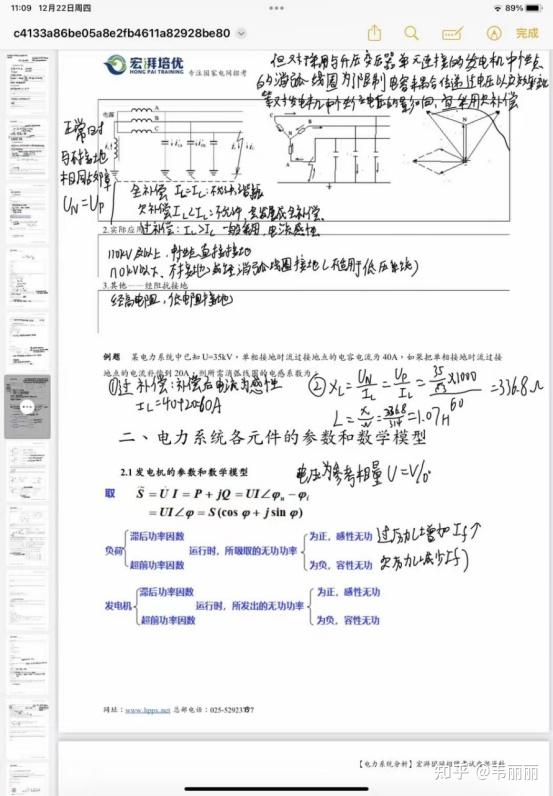 11:09 12月22日周四
89%
c4133a86be05a8e2fb4611a82928be80
完成
宏湃培优
HONG PAI TRAINING
专注国家电网招考
但对于采用与升压变压器单元连接的发电机中性点
的消弧线圈为了限制电容耦合传递过电压以及频率变动
等对发电机中性点位移电压的影响,宜采用欠补偿
正常时
与不接地
相同故障
U_N = U_P
电源
A
B
C
N
全补偿 I_L=I_C:不允许,谐振
欠补偿 I_L<I_C:不允许,易发展成全补偿.
过补偿:I_L>I_C 一般采用,电流感性
2.实际应用
110kV及以上,中性点直接接地
110kV以下,不接地或经消弧线圈接地(不适用于低压系统)
3.其他——经阻抗接地
经高电阻,低电阻接地
例题 某电力系统中已知 U=35kV,单相接地时流过接地点的电容电流为 40A,如果把单相接地时流过接
地点的电流补偿到 20A,则所需消弧线圈的电感系数为
①过补偿:补偿后电流为感性
I_L=40+20=60A
② X_L = U_N/I_L = U_P/I_L = (35/√3 ×1000)/60 = 336.8Ω
L = X_L/ω = 336.8/314 = 1.07H
二、电力系统各元件的参数和数学模型
2.1 发电机的参数和数学模型
电压为参考相量 U=U∠0°
取 S̃ = U̇ I = P + jQ = UI∠φ_u − φ_i
= UI∠φ = S(cos φ + j sin φ)
负荷 滞后功率因数 运行时,所吸取的无功功率 为正,感性无功 过励(增加I_f↑
超前功率因数 为负,容性无功 欠励(减少I_f)
发电机 滞后功率因数 运行时,所发出的无功功率 为正,感性无功
超前功率因数 为负,容性无功
网址:www.hppx.net 总部电话:025-52923787
【电力系统分析】宏湃国网招聘考试内部资料
知乎 @韦丽丽